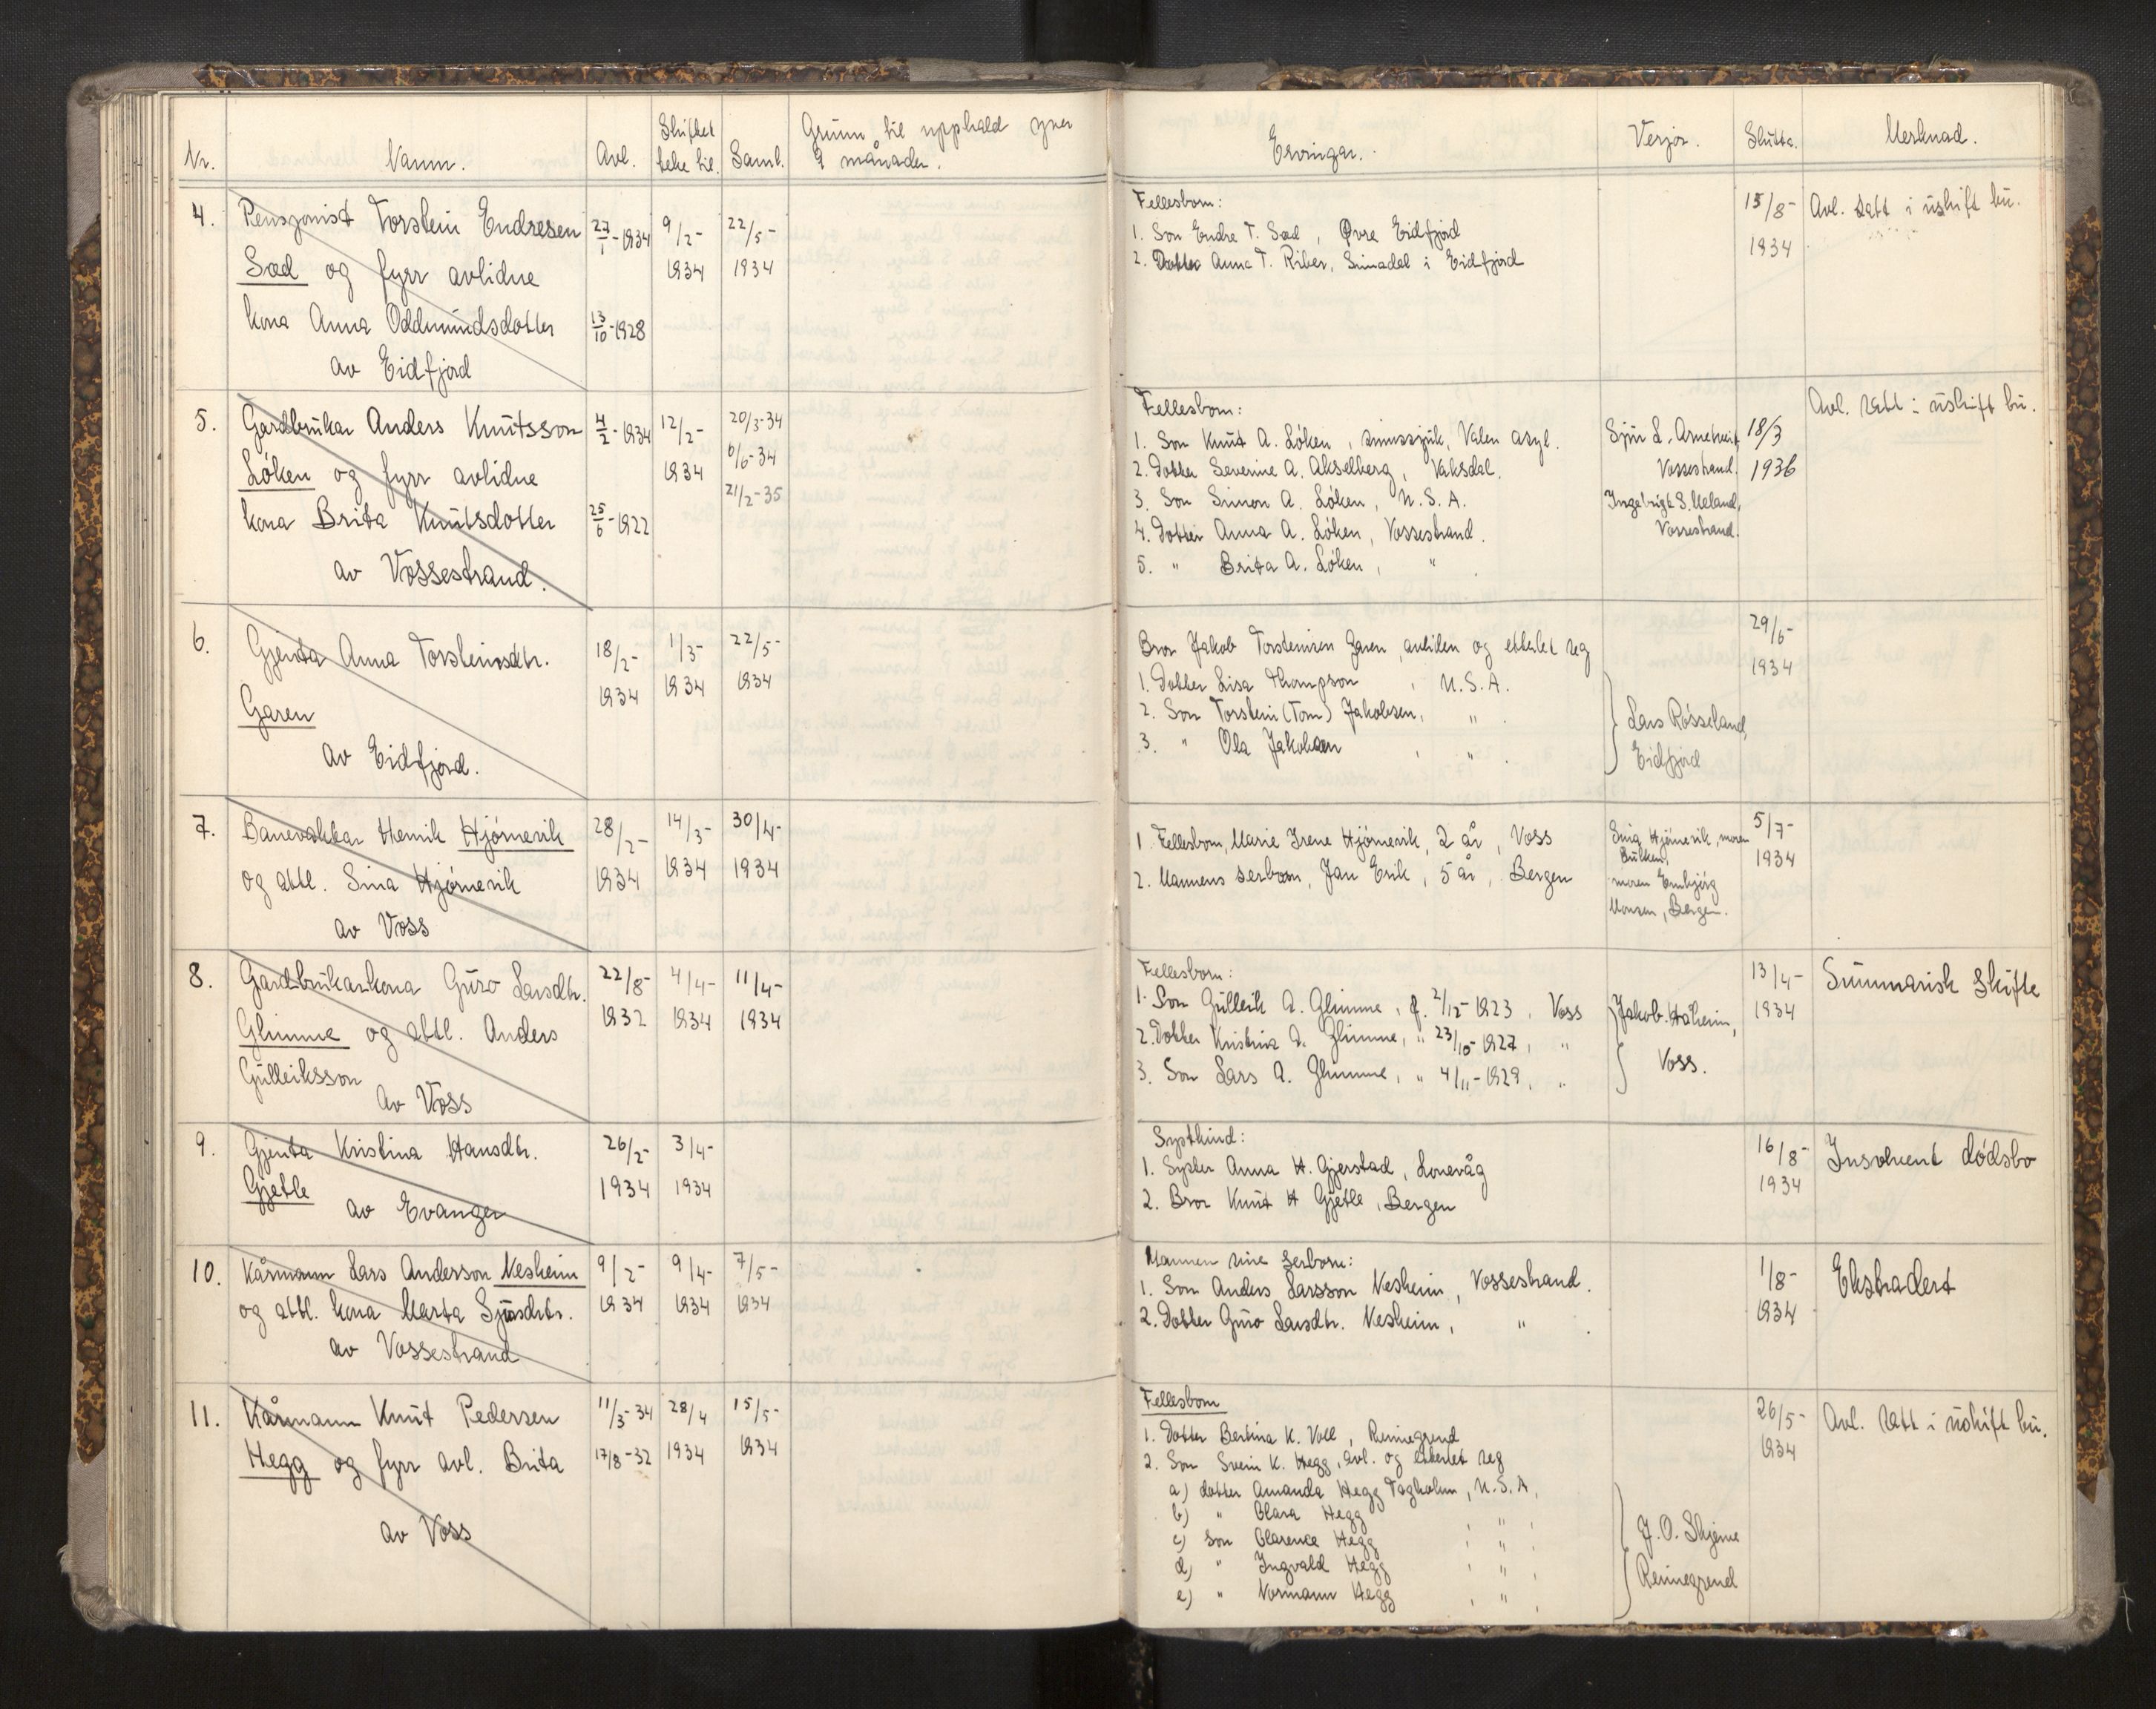 Nr. Namn. Avl. Skiftet teke til. Saml. Grunn til upphald yver 9 månader. Ervingar. Verjor. Slutta. Merknad.
4. Pensjonist Torstein Endresen 27/1-1934 9/2- 22/5-
Sæd og fyrr avlidne 1934 1934
kona Anna Oddmundsdotter 13/10-1928
av Eidfjord
Fellesborn:
1. Son Endre T. Sæd, Øvre Eidfjord
2. Dotter Anna T. Riber, Simadal i Eidfjord
15/8-
1934
Avl. satt i uskift bu.
5. Gardbrukar Anders Knutsson 4/2-1934 12/2- 20/3-34
Lóken og fyrr avlidne 1934 6/6-34
21/2-35
kona Brita Knutsdotter 25/6-1922
av Vossestrand.
Fellesborn:
1. Son Knut A. Lóken, sinnssjuk, Valen asyl.
2. Dotter Severine A. Akselberg, Vaksdal.
3. Son Simon A. Lóken, U.S.A.
4. Dotter Anna A. Lóken, Vossestrand.
5. " Brita A. Lóken, " .
Sjur L. Arnetveit,
Vossestrand.
Ingebrigt S. Meland,
Vossestrand.
18/3
1936
Avl. satt i uskift bu.
6. Gjenta Anna Torsteinsdtr. 18/2- 1/3- 22/5-
1934 1934 1934
Garen
av Eidfjord.
Bror Jakob Torsteinsen Garen, avliden og etterlet seg
1. Dotter Lisa Thompson, U.S.A.
2. Son Torstein (Tom) Jakobsen, " .
3. " Ola Jakobsen, " .
Lars Rósseland,
Eidfjord
29/6-
1934
7. Banevaktar Henrik Hjórnevik 28/2- 14/3- 30/4-
og attl. Sina Hjórnevik 1934 1934 1934
av Voss
1. Fellesborn, Marie Irene Hjórnevik, 2 år, Voss
2. Mannens serborn, Jan Erik, 5 år, Bergen
Sina Hjórnevik, moren
Bulken,
moren Embjórg
Monsen, Bergen.
5/7-
1934
8. Gardbrukarkona Guro Larsdtr. 22/8- 4/4- 11/4-
Glimme og attl. Anders 1932 1934 1934
Gulleiksson
av Voss
Fellesborn:
1. Son Gulleik A. Glimme, f. 2/12-1923, Voss
2. Dotter Kristina A. Glimme, " 23/10-1927, "
3. Son Lars A. Glimme, " 4/11-1929, "
Jakob Håheim,
Voss.
13/4-
1934
Summarisk skifte
9. Gjenta Kristina Hansdtr. 26/2- 3/4-
Gjetle 1934 1934
av Evanger
Systkind:
1. Syster Anna H. Gjerstad, Lonevåg
2. Bror Knut H Gjetle, Bergen
16/8-
1934
Insolvent dódsbo
10. Kårmann Lars Anderson Nesheim 9/2- 9/4- 7/5-
og attl. kona Marta Sjursdtr. 1934 1934 1934
av Vossestrand
Mannen sine serborn:
1. Son Anders Larsson Nesheim, Vossestrand.
2. Dotter Guro Larsdtr. Nesheim, " .
1/8-
1934
Ekstradert
11. Kårmann Knut Pedersen 11/3-34 28/4 15/5-
Hegg og fyrr avl. Brita 17/8-32 1934 1934
av Voss
Fellesborn
1. Dotter Bertina K. Voll, Rennegrend
2. Son Svein K. Hegg, avl. og etterlet seg
a) dotter Amanda Hegg Fagholm, U.S.A,
b) " Clara Hegg, " ,
c) son Clarence Hegg, " ,
d) " Ingvald Hegg, " ,
e) " Normann Hegg, " ,
J. O. Skjerve
Rennegrend
26/5-
1934
Avl. satt i uskift bu.